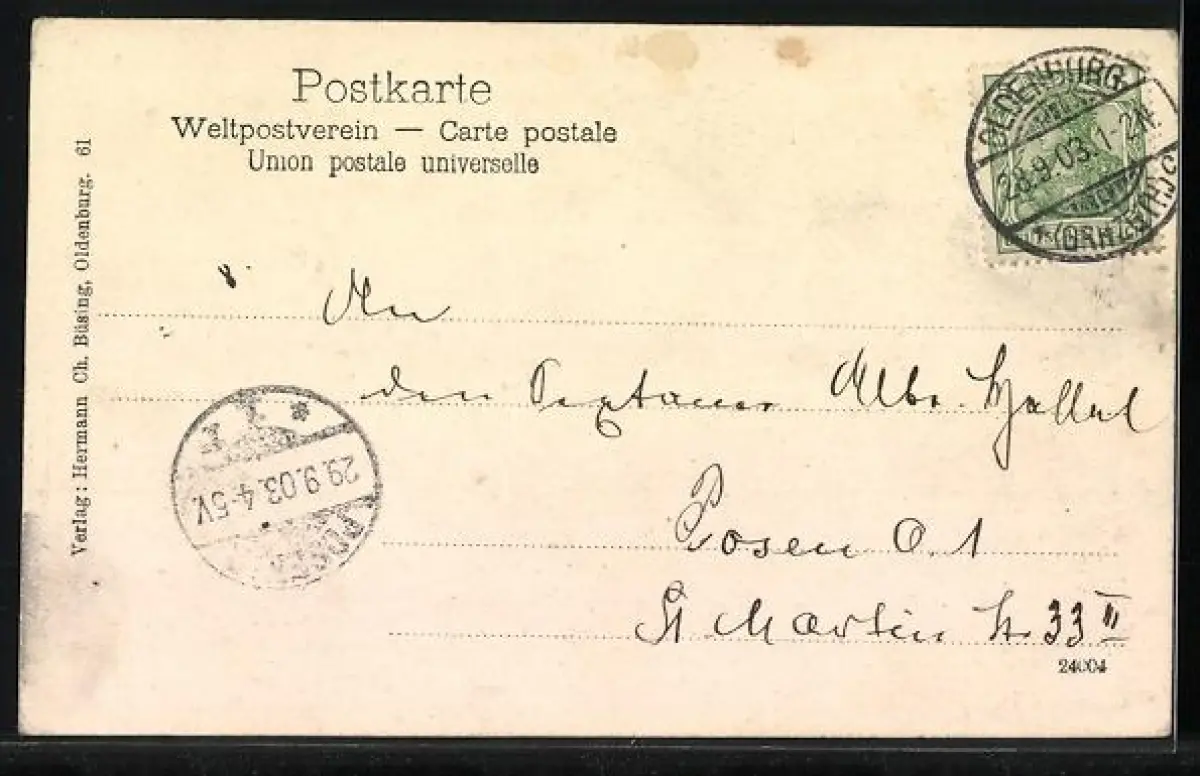 Postkarte
Weltpostverein — Carte postale
Union postale universelle
OLDENBURG
28.9.03. 1-2N.
*(GRHZGTH)C
Verlag: Hermann Ch. Büsing, Oldenburg. 61
An
den Sextaner Albr.
29.9.03. 4-5V.
POSEN
Posen O. 1
St Martin Str. 33 II
24004